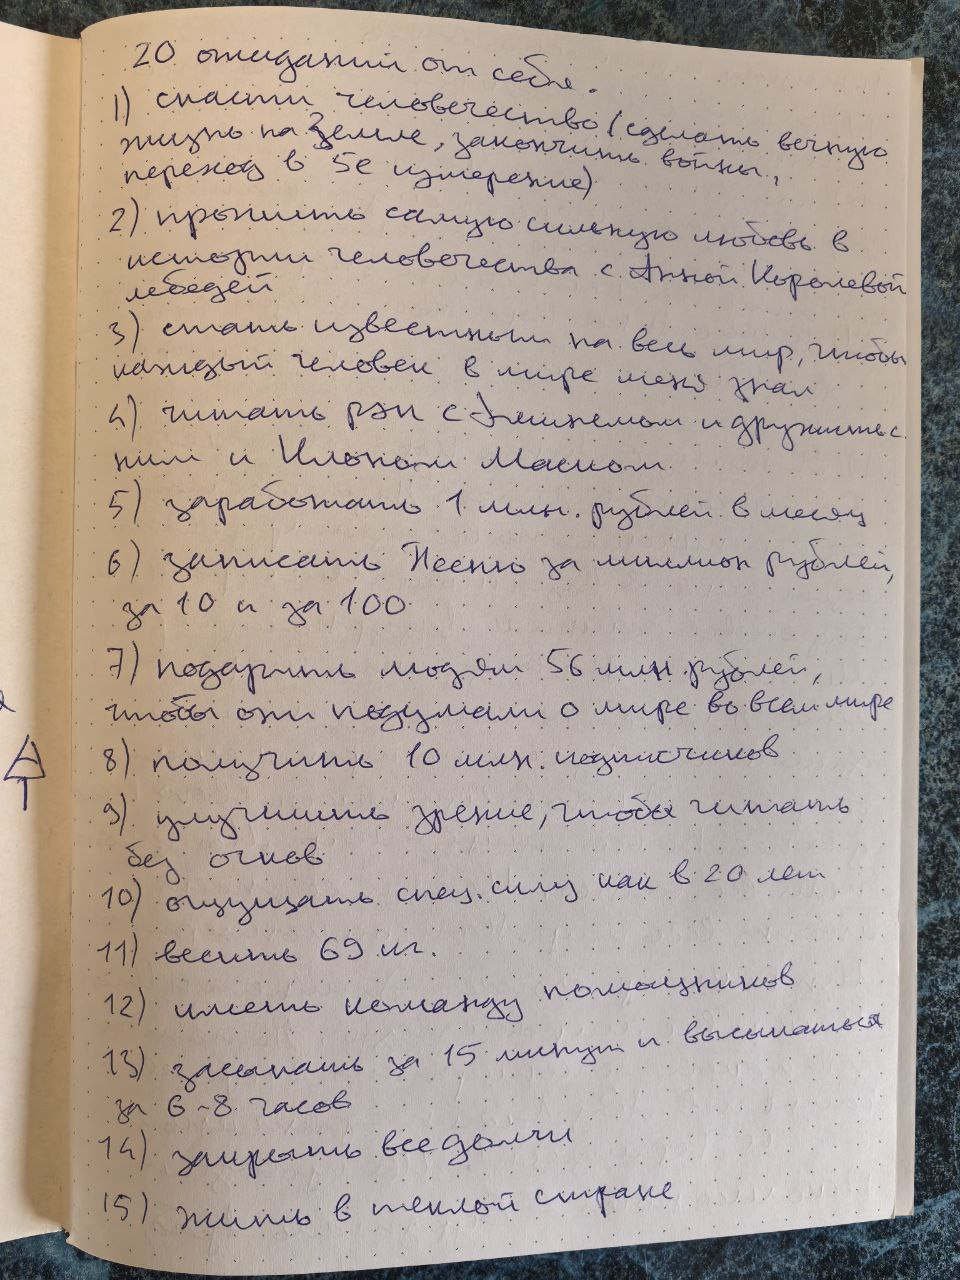 20 ожиданий от себя.
1) спасти человечество (сделать вечную
жизнь на Земле, закончить войны,
переход в 5е измерение)
2) прожить самую сильную любовь в
истории человечества с Анной Королевой
лебедей
3) стать известным на весь мир, чтобы
каждый человек в мире меня знал
4) читать рэп с Эминемом и дружить с
ним и Илоном Маском
5) заработать 1 млн. рублей в месяц
6) записать Песню за миллион рублей,
за 10 и за 100
7) подарить людям 56 млн. рублей,
чтобы они подумали о мире во всем мире
8) получить 10 млн. подписчиков
9) улучшить зрение, чтобы читать
без очков
10) ощущать спец. силу как в 20 лет
11) весить 69 кг.
12) иметь команду помощников
13) засыпать за 15 минут и высыпаться
за 6-8 часов
14) закрыть все долги
15) жить в теплой стране